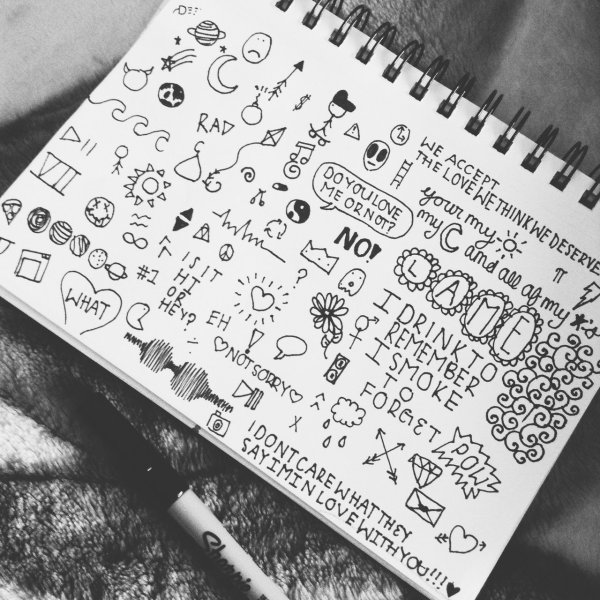 RAD
$
WE ACCEPT
THE LOVE WE THINK WE DESERVE
DO YOU LOVE
ME OR NOT?
NO!
your my
my C and all of my ★s
π
LAME
VII
WHAT
#1
IS IT
HI
OR
HEY?
EH
!
?
I DRINK TO
REMEMBER
I SMOKE
TO
FORGET
♡NOT SORRY♡
X
POW!
I DON'T CARE WHAT THEY
SAY IM IN LOVE WITH YOU!!!♥
Sharpie